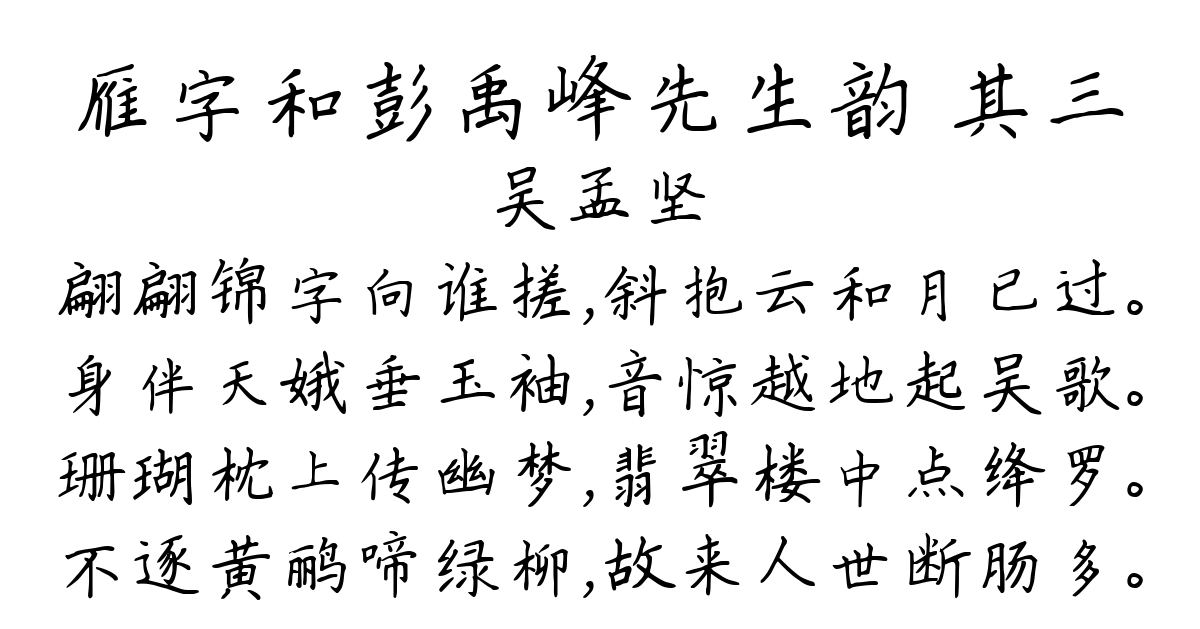 雁字和彭禹峰先生韵 其三
吴孟坚
翩翩锦字向谁搓,斜抱云和月已过。
身伴天娥垂玉袖,音惊越地起吴歌。
珊瑚枕上传幽梦,翡翠楼中点绛罗。
不逐黄鹂啼绿柳,故来人世断肠多。